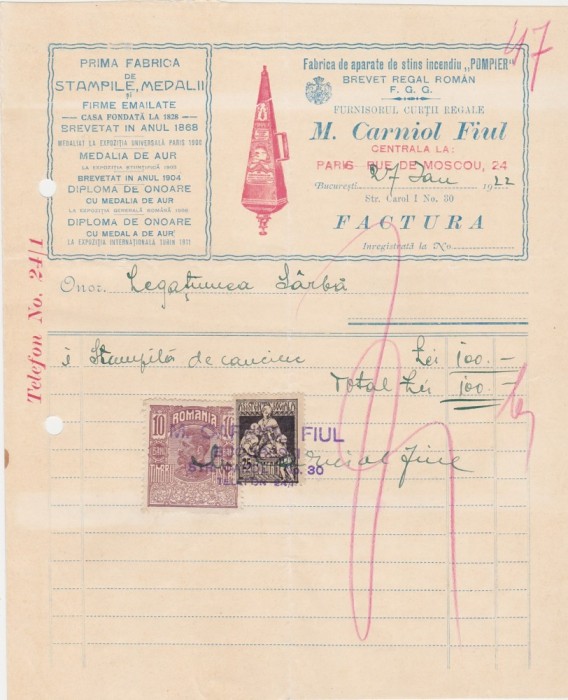 47
PRIMA FABRICA
DE
STAMPILE, MEDALII
și
FIRME EMAILATE
CASA FONDATĂ LA 1828
BREVETAT IN ANUL 1868
MEDALIAT LA EXPOZIȚIA UNIVERSALĂ PARIS 1900
MEDALIA DE AUR
LA EXPOZIȚIA ȘTIINȚIFICĂ 1903
BREVETAT IN ANUL 1904
DIPLOMA DE ONOARE
CU MEDALIA DE AUR
LA EXPOZIȚIA GENERALĂ ROMÂNĂ 1906
DIPLOMA DE ONOARE
CU MEDALA DE AUR
LA EXPOZIȚIA INTERNAȚIONALĂ TURIN 1911
Fabrica de aparate de stins incendiu „POMPIER"
BREVET REGAL ROMÂN
F. G. G.
FURNISORUL CURȚII REGALE
M. Carniol Fiul
CENTRALA LA:
PARIS RUE DE MOSCOU, 24
București, 27 Ian 1922
Str. Carol I No. 30
FACTURA
Inregistrată la No.
Telefon No. 24/1
Onor. Legațiunea Sârbă
1 Stampilă de cauciuc Lei 100.—
Total Lei 100.—
10 ROMANIA 10
FIUL
30